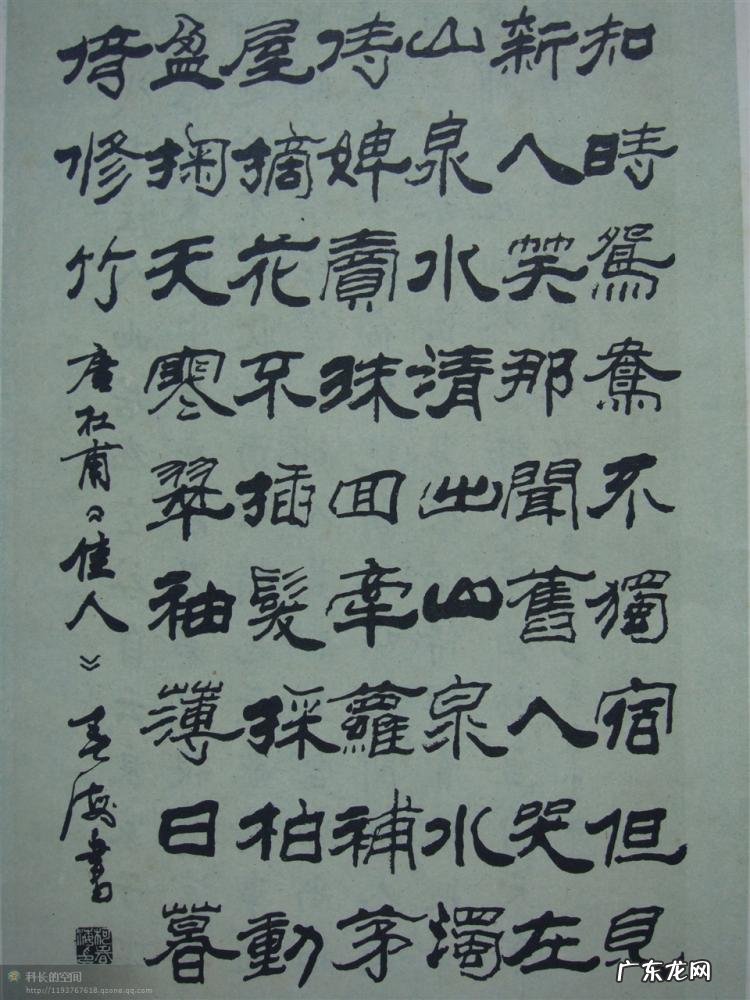 知時鴛鴦不獨宿但見
新人笑那聞舊人哭在
山泉水清出山泉水濁
侍婢賣珠回牽蘿補茅
屋摘花不插髮採柏動
盈掬天寒翠袖薄日暮
倚修竹 唐杜甫《佳人》 春海書
科长的空间
http://1193767618.qzone.qq.com
广东龙网